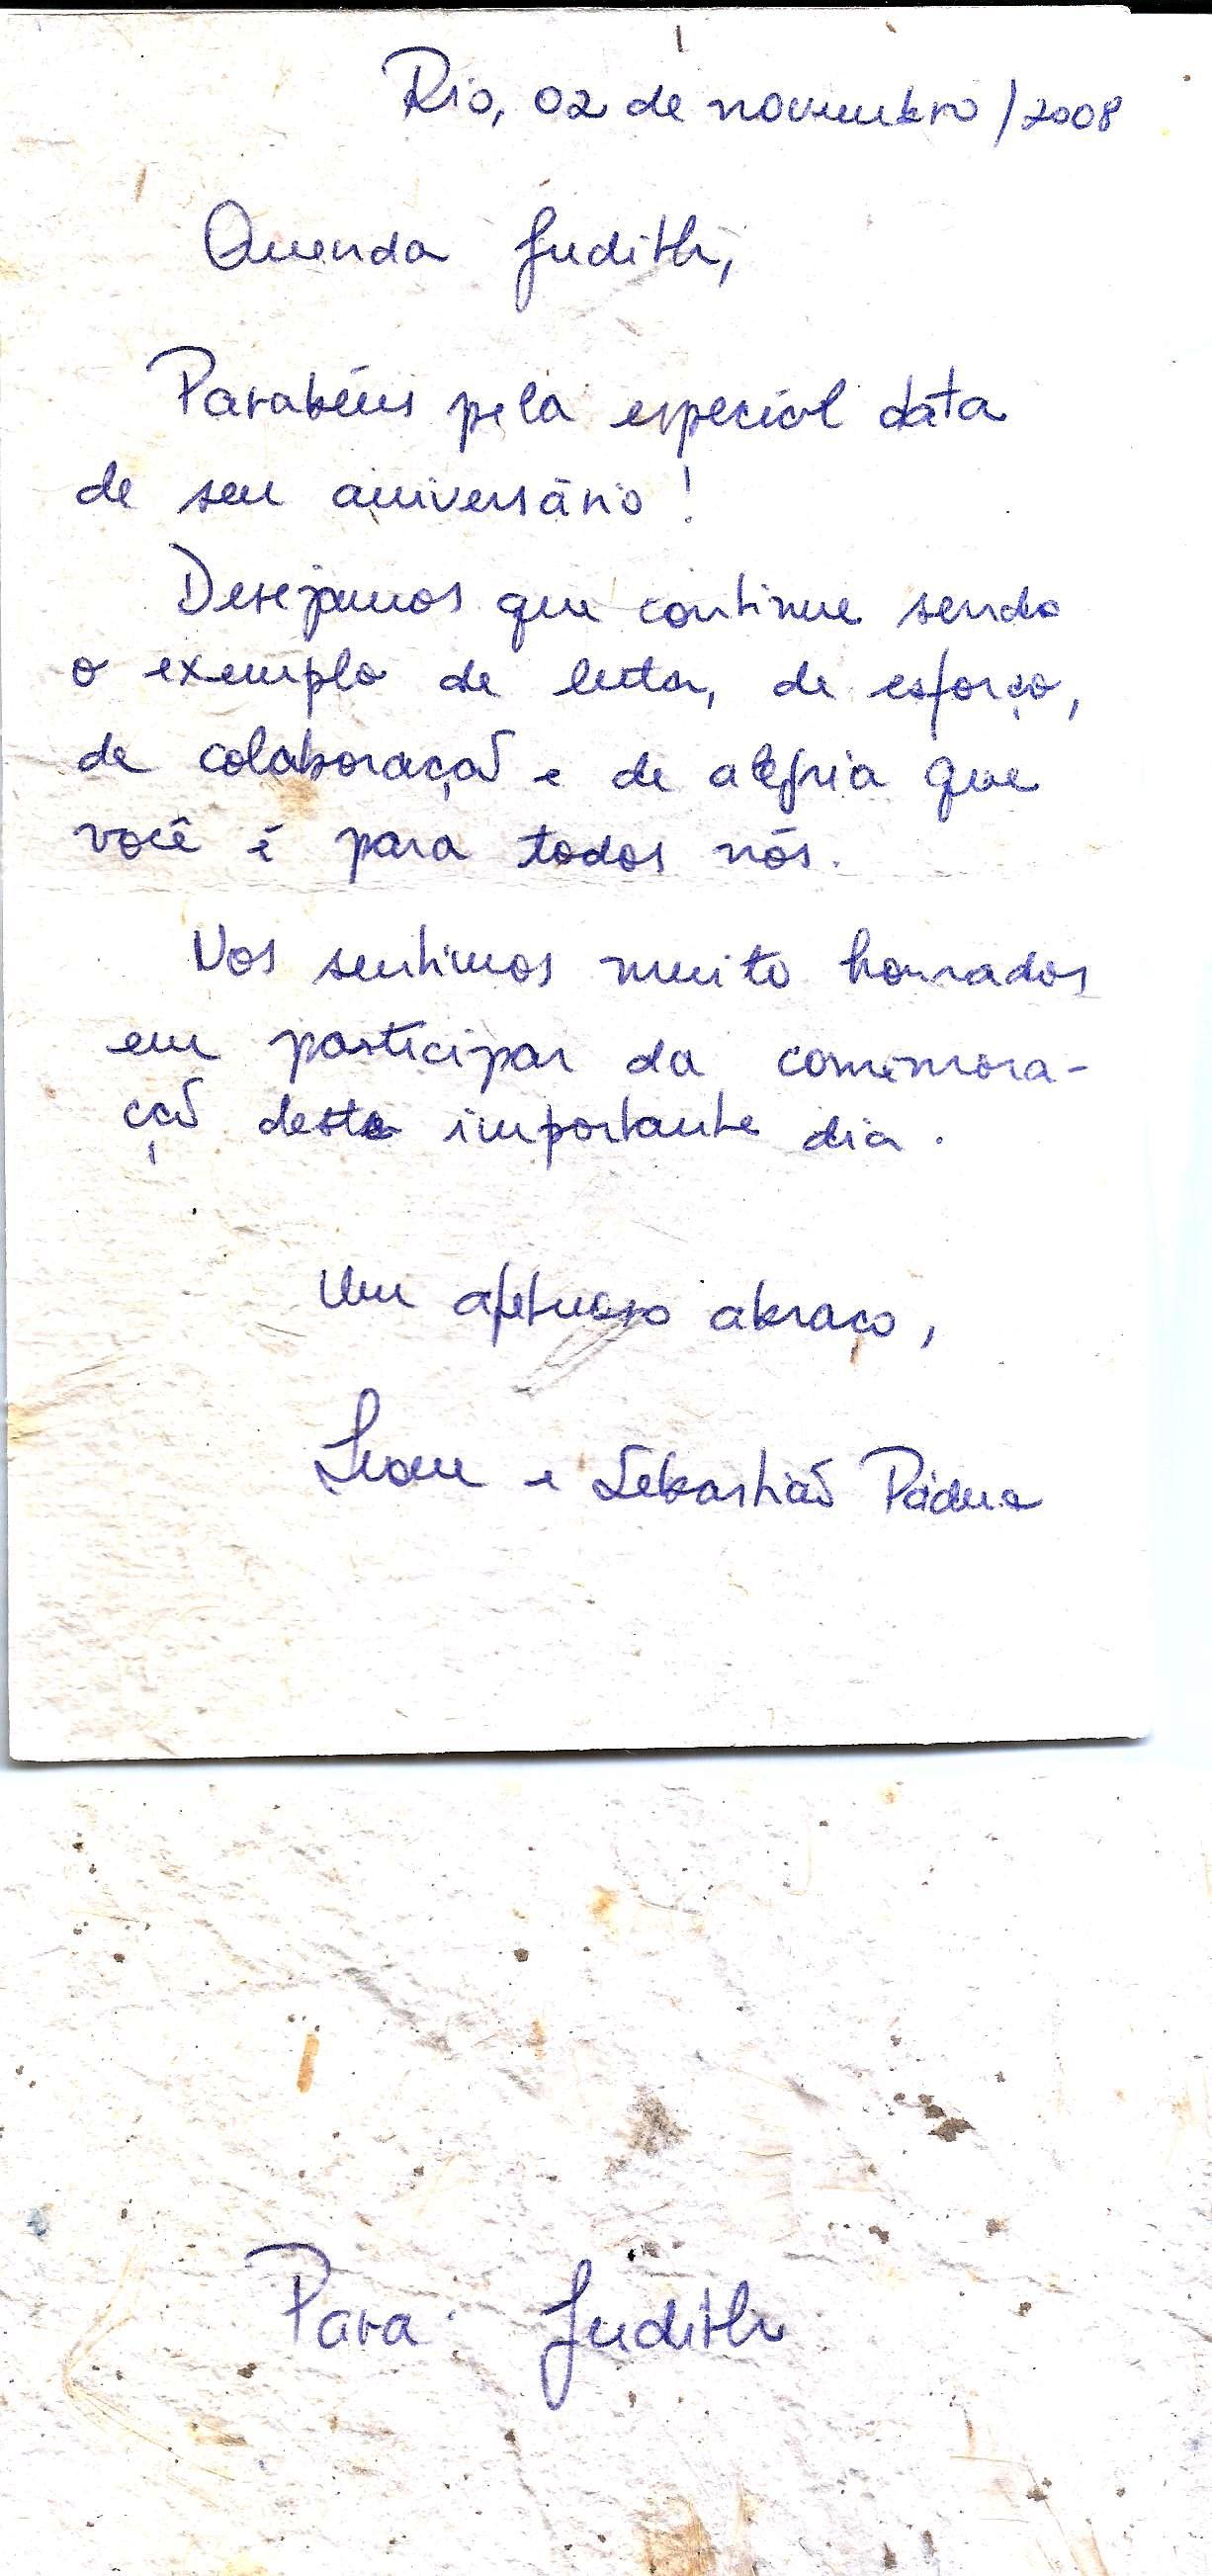 Rio, 02 de novembro/2008
Querida Judith,
Parabéns pela especial data
de seu aniversário!
Desejamos que continue sendo
o exemplo de luta, de esforço,
de colaboração e de alegria que
você é para todos nós.
Nos sentimos muito honrados
em participar da comemora-
ção deste importante dia.
Um afetuoso abraço,
e Sebastião Pádua
Para Judith